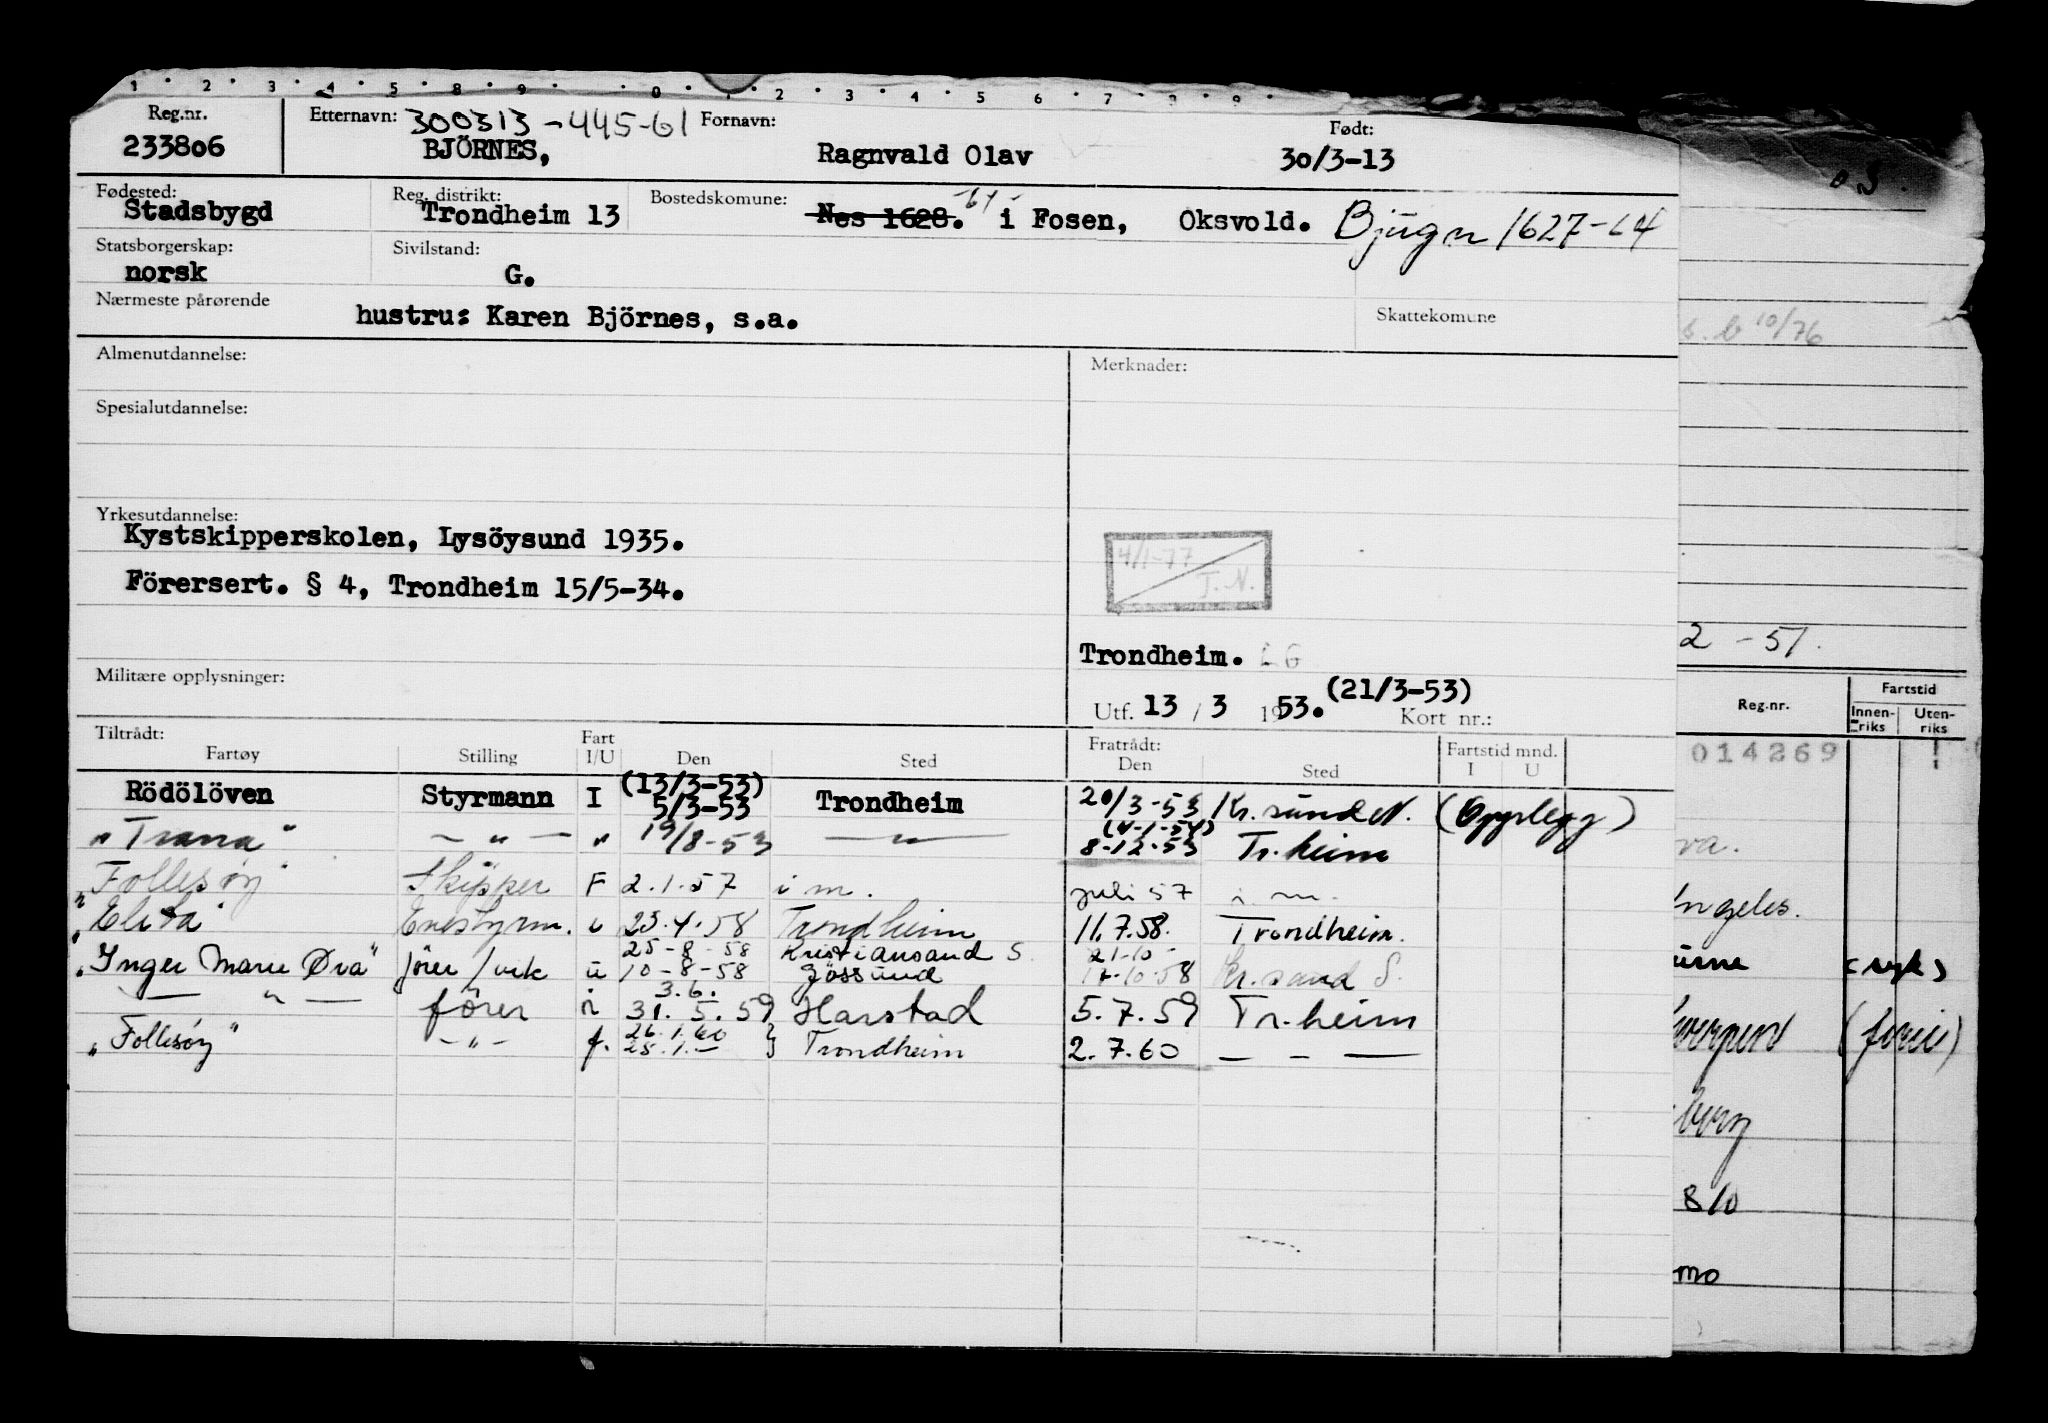 1 2 3 4 5 8 9 0 1 2 3 4 5 6 7 8 9
Reg.nr. Etternavn: 300313-445-61 Fornavn: Født:
233806 BJÖRNES, Ragnvald Olav 30/3-13
Fødested: Reg. distrikt: Bostedskomune: -64-
Stadsbygd Trondheim 13 Nes 1628. i Fosen, Oksvold. Bjugn 1627-64
Statsborgerskap: Sivilstand:
norsk G.
Nærmeste pårørende Skattekomune
hustru: Karen Björnes, s.a.
Almenutdannelse: Merknader:
Spesialutdannelse:
Yrkesutdannelse:
Kystskipperskolen, Lysöysund 1935.
Förersert. § 4, Trondheim 15/5-34.
4/1-77
T.N.
Trondheim. LG
Militære opplysninger:
Utf. 13 / 3 1953. (21/3-53) Kort nr.:
Tiltrådt: Fratrådt: Fartstid mnd.
Fartøy Stilling Fart I/U Den Sted Den Sted I U
Rödölöven Styrmann I (13/3-53) 5/3-53 Trondheim 20/3-53 Kr.sund N. (Opplegg)
"Trana" — " — " 19/8-53 — " — (4-1-54) 8-12-53 Tr.heim
"Follesøy" Skipper F 2.1.57 i m. juli 57 i. m.
"Elita" Enestyrm. u 23.4.58 Trondheim 11.7.58. Trondheim.
"Inger Marie Øra" fører/vik u 25-8-58 10-8-58 Kristiansand S. Jössund 21-10- 17-10-58 Kr.sand S.
— " — fører i 3.6. 31.5.59 Harstad 5.7.59 Tr.heim
"Follesøy" - " - f. 26.1.60 25.1.— } Trondheim 2.7.60 — - —
s. b 10/76
2 - 51.
Reg.nr. Fartstid
Innen-riks Uten-riks
014269
va.
Angeles.
(syk)
810
mo